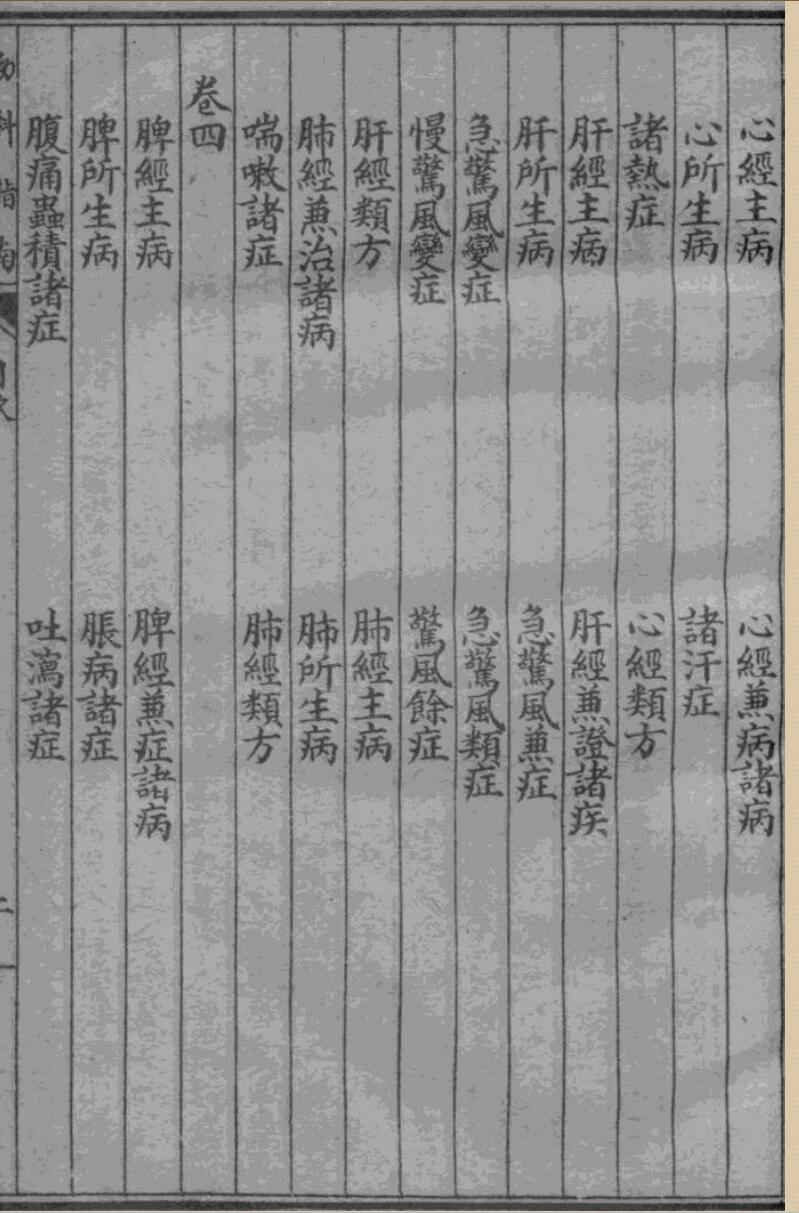 心經主病　心經兼病諸病
心所生病　諸汗症
諸熱症　心經類方
肝經主病　肝經兼證諸疾
肝所生病　急驚風兼症
急驚風變症　急驚風類症
慢驚風變症　驚風餘症
肝經類方　肺經主病
肺經兼治諸病　肺所生病
喘嗽諸症　肺經類方
卷四
脾經主病　脾經兼症諸病
脾所生病　脹病諸症
腹痛蟲積諸症　吐瀉諸症
科指南　目次　二